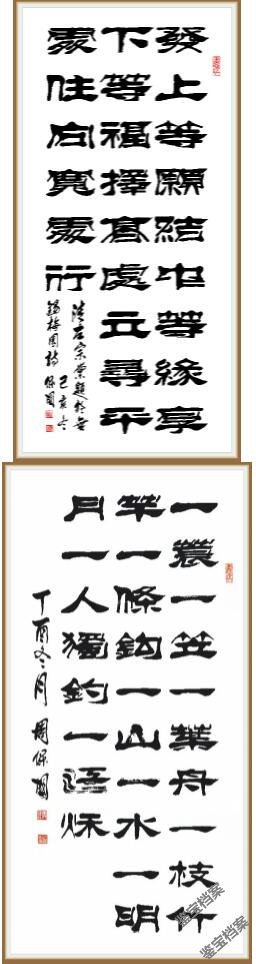 發上等願結中等緣享
下等福擇高處立尋平
處住向寬處行
清左宗棠題於無
錫梅園詩 己亥冬 保國
一蓑一笠一葉舟一枝竹
竿一條鈎一山一水一明
月一人獨釣一秌
丁酉冬月 周保國
鉴宝档案
鉴宝档案